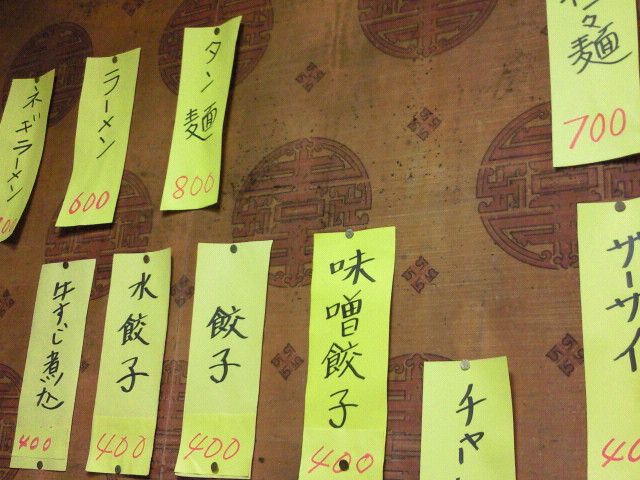 ネギラーメン
00
ラーメン
600
タン麺
800
麺
700
牛すじ煮込
400
水餃子
400
餃子
400
味噌餃子
400
チャー
ザーサイ
40